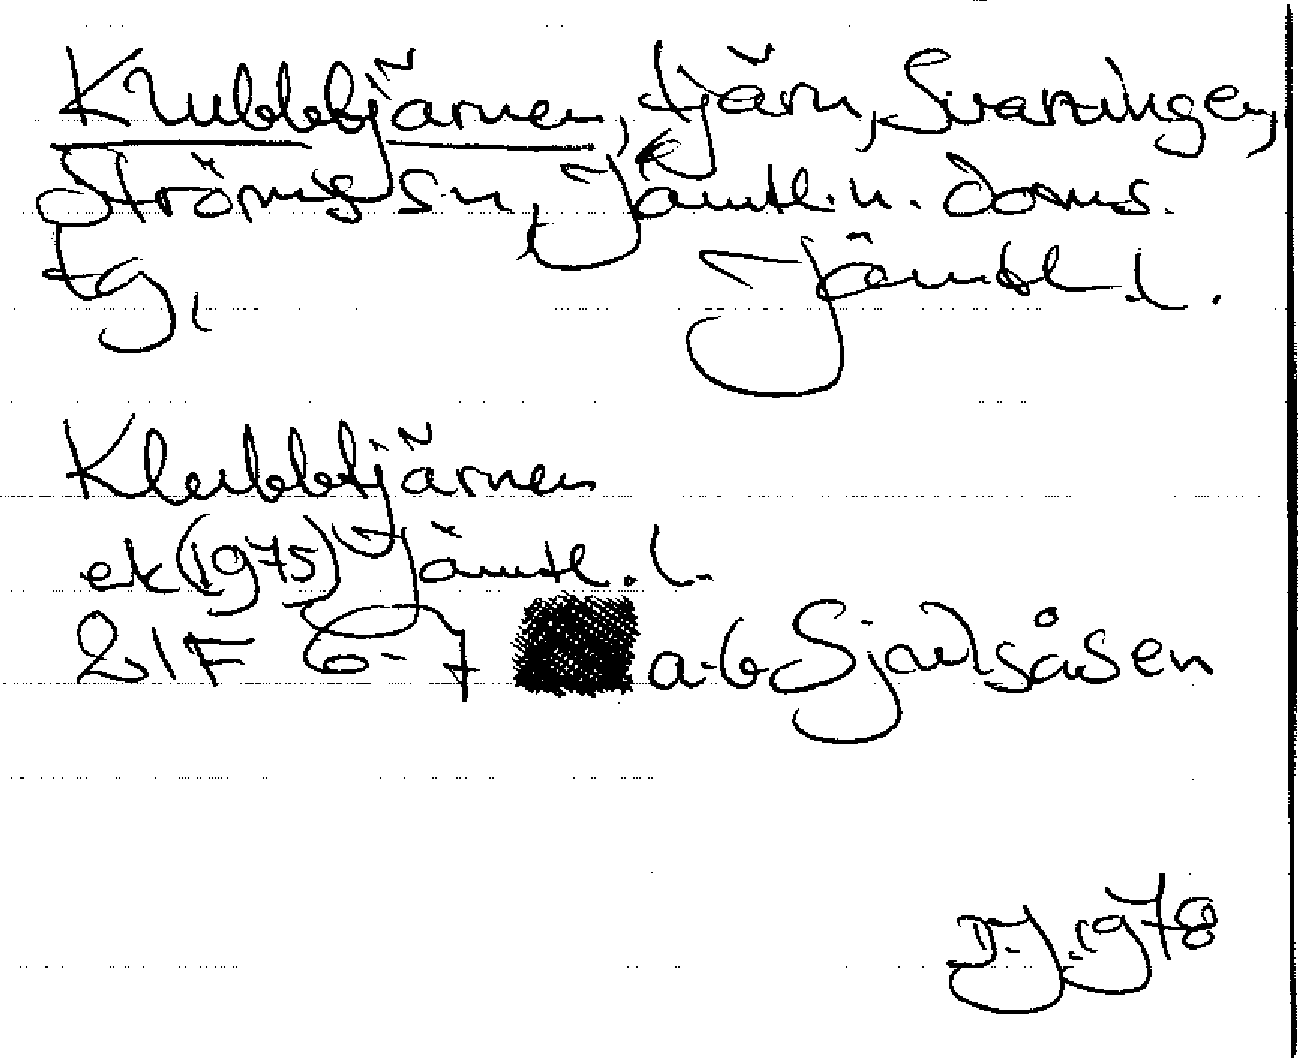 Klubbtjärnen, tjärn, Svaningen,
Ströms sn, Jämtl. n. doms.
tg, Jämtl l.
Klubbtjärnen
ek (1975) Jämtl. l.
21F 6-7 a-b Sjoutsåsen
D.J. 1978